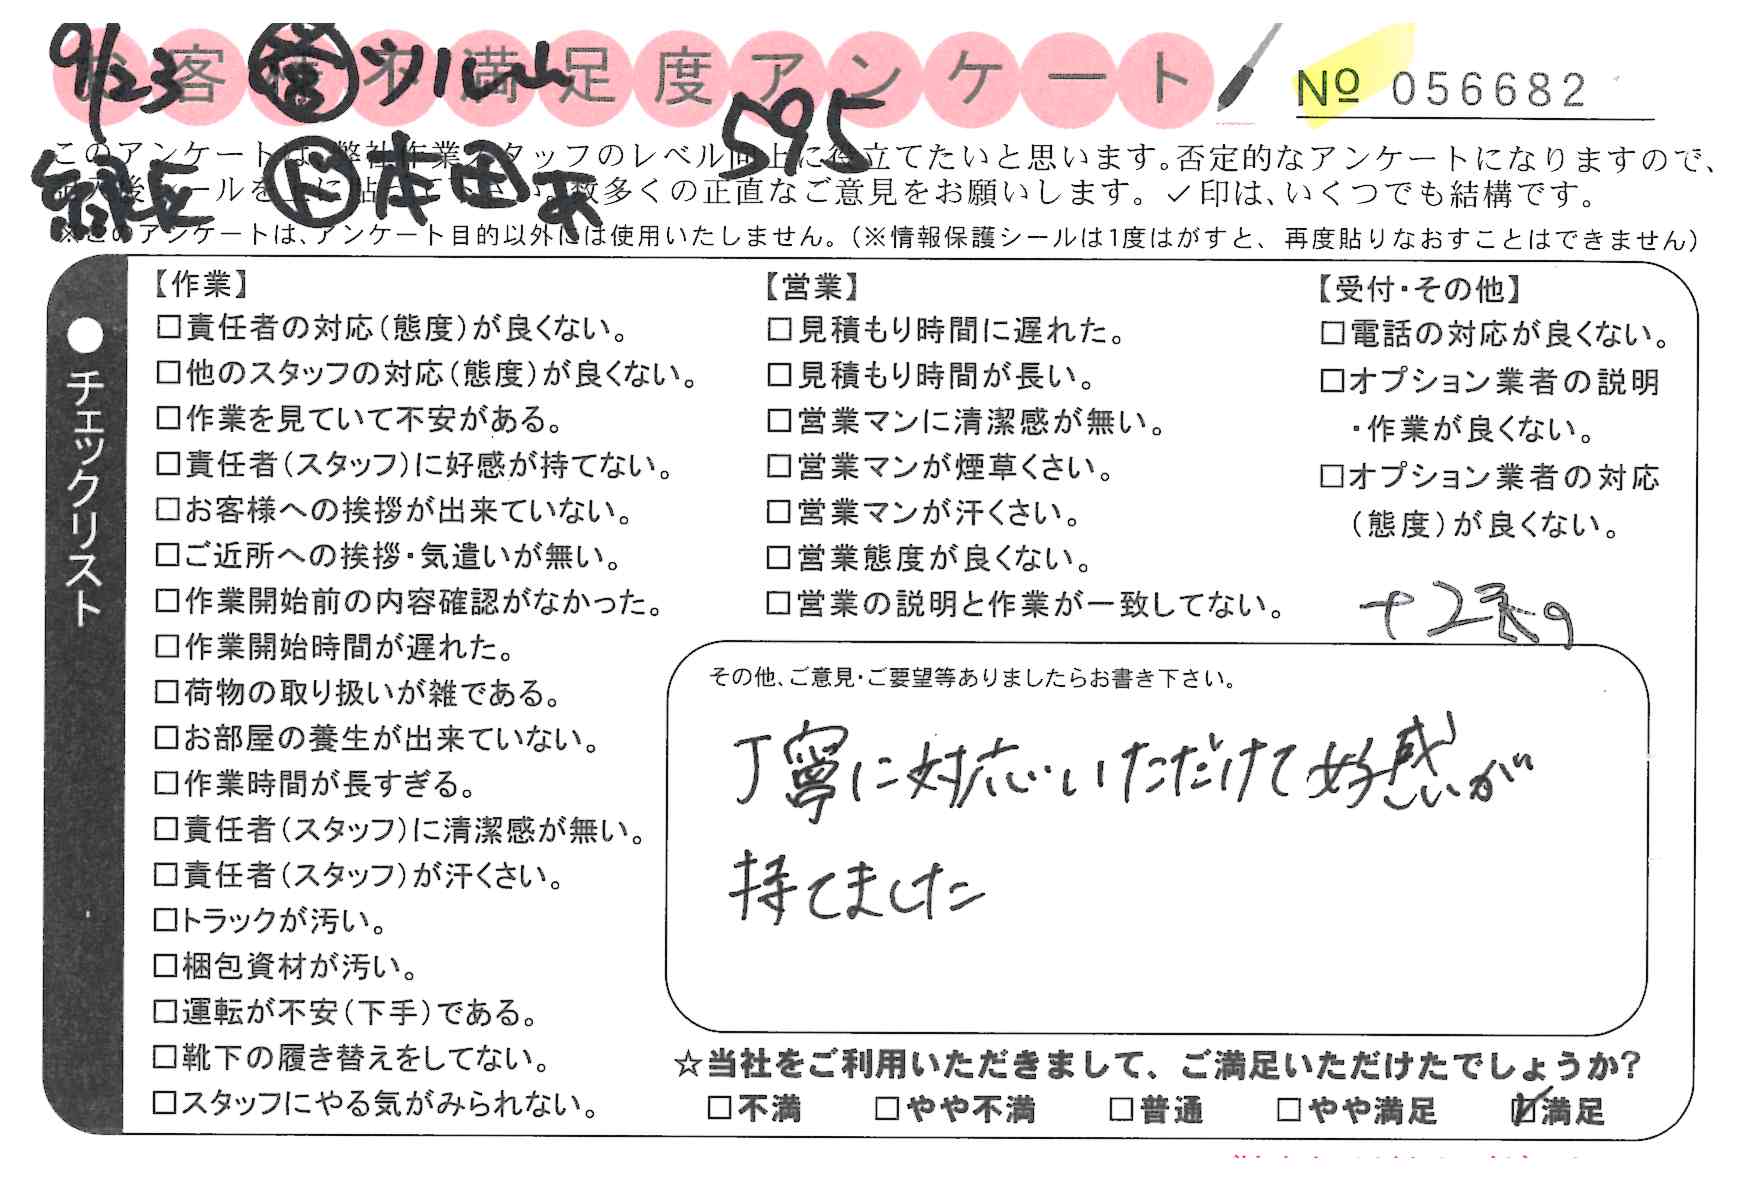 お客様不満足度アンケート
№ 056682
9/23 ㊂ツルー山
595
このアンケートは、弊社作業スタッフのレベル向上に役立てたいと思います。否定的なアンケートになりますので、
ールを上に貼って下さい。数多くの正直なご意見をお願いします。✓印は、いくつでも結構です。
本田
※このアンケートは、アンケート目的以外には使用いたしません。（※情報保護シールは1度はがすと、再度貼りなおすことはできません）
●チェックリスト
【作業】
□責任者の対応（態度）が良くない。
□他のスタッフの対応（態度）が良くない。
□作業を見ていて不安がある。
□責任者（スタッフ）に好感が持てない。
□お客様への挨拶が出来ていない。
□ご近所への挨拶・気遣いが無い。
□作業開始前の内容確認がなかった。
□作業開始時間が遅れた。
□荷物の取り扱いが雑である。
□お部屋の養生が出来ていない。
□作業時間が長すぎる。
□責任者（スタッフ）に清潔感が無い。
□責任者（スタッフ）が汗くさい。
□トラックが汚い。
□梱包資材が汚い。
□運転が不安（下手）である。
□靴下の履き替えをしてない。
□スタッフにやる気がみられない。
【営業】
□見積もり時間に遅れた。
□見積もり時間が長い。
□営業マンに清潔感が無い。
□営業マンが煙草くさい。
□営業マンが汗くさい。
□営業態度が良くない。
□営業の説明と作業が一致してない。
【受付・その他】
□電話の対応が良くない。
□オプション業者の説明
・作業が良くない。
□オプション業者の対応
（態度）が良くない。
その他、ご意見・ご要望等ありましたらお書き下さい。
丁寧に対応いただけて好感が
持てました
☆当社をご利用いただきまして、ご満足いただけたでしょうか?
□不満 □やや不満 □普通 □やや満足 ☑満足